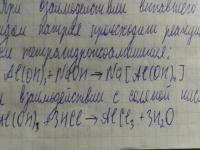 При взаимодействии выпавшего
натрия происходит реакция
тетрагидроксоалюминия:
Al(OH)₃+NaOH→Na[Al(OH)₄]
взаимодействии с соляной кисл
Al(OH)₃+3HCl→AlCl₃+3H₂O